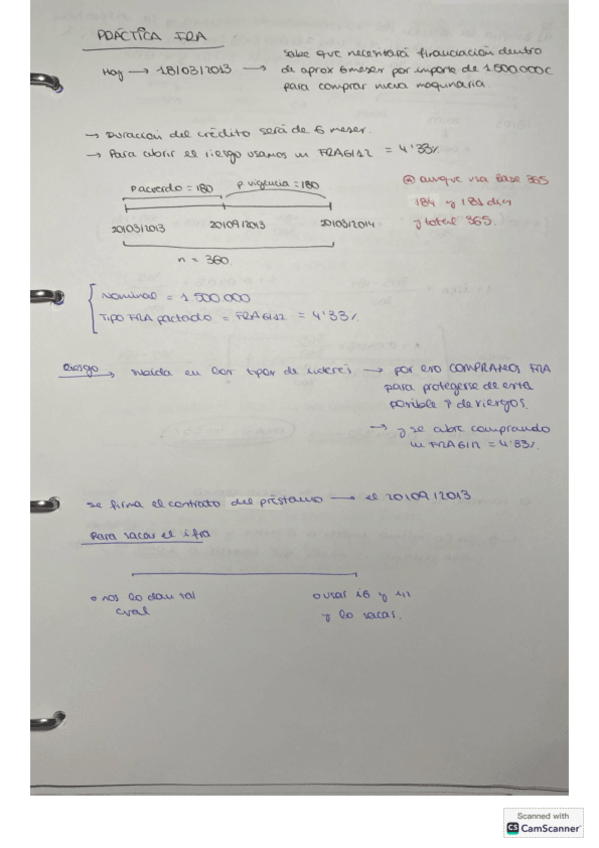 PRÁCTICA FRA
Hoy → 18/03/2013 → sabe que necesitará financiación dentro
de aprox 6 meses por importe de 1.500.000€
para comprar nueva maquinaria.
→ Duración del crédito será de 6 meses.
→ Para cubrir el riesgo usamos un FRA6/12 = 4'33%
p acuerdo = 180 p vigencia = 180
20/03/2013 20/09/2013 20/03/2014
n = 360
aunque usa base 365
184 y 181 días
y total 365.
Nominal = 1 500 000
Tipo FRA pactado = FRA6/12 = 4'33%
Riesgo → en los tipos de interés → por eso COMPRAMOS FRA
para protegerse de esta
posible ↑ de riesgos.
→ y se cubre comprando
un FRA6/12 = 4'33%
Se firma el contrato del préstamo → el 20/09/2013
Para sacar el ifra
o nos lo dan tal
cual
o usar i6 y
y lo sacas.
Scanned with
CS CamScanner